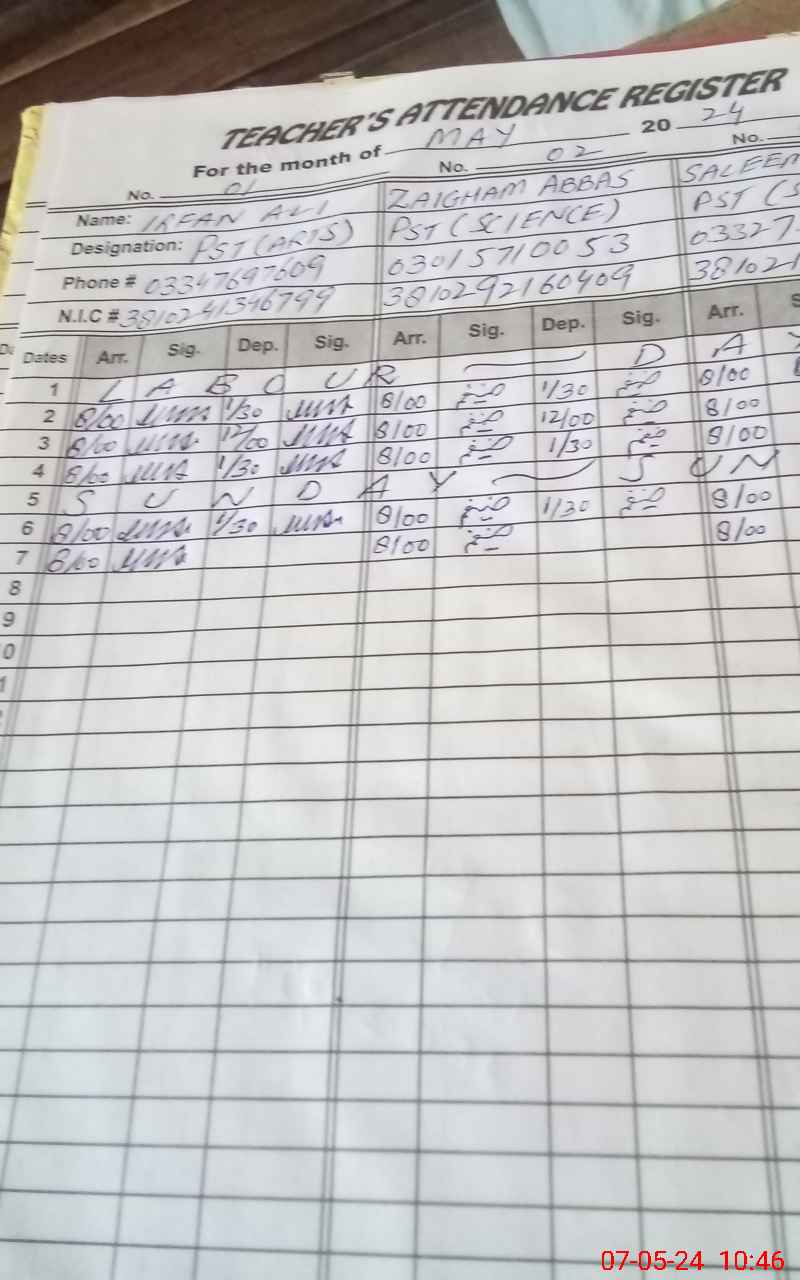 TEACHER'S ATTENDANCE REGISTER
For the month of MAY 20 24
No. 01 No. 02 No.
Name: IRFAN ALI ZAIGHAM ABBAS SALEEM
Designation: PST (ARTS) PST (SCIENCE) PST (S
Phone # 03347697609 03015710053 03327
N.I.C # 3810241346799 3810292160409 381021
Dates Arr. Sig. Dep. Sig. Arr. Sig. Dep. Sig. Arr. S
1 L A B O U R D A Y
2 8/00 1/30 8/00 1/30 8/00
3 8/00 12/00 8/00 12/00 8/00
4 8/00 1/30 8/00 1/30 8/00
5 S U N D A Y S U N
6 8/00 1/30 8/00 1/30 8/00
7 8/00 8/00 8/00
8
9
0
1
07-05-24 10:46